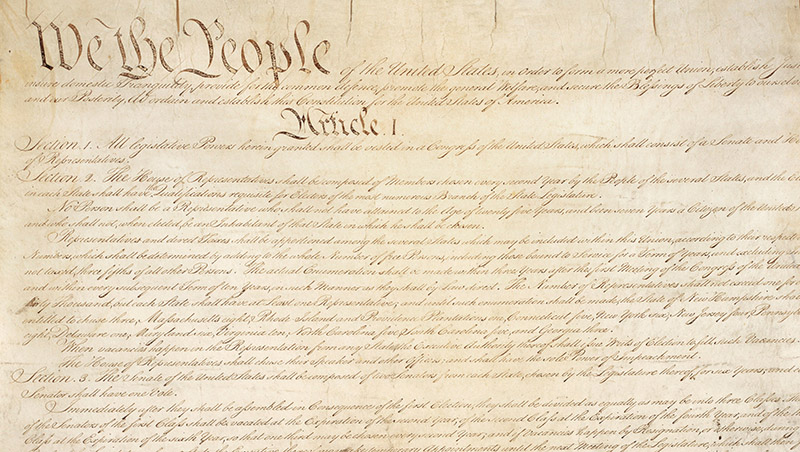 We the People of the United States, in Order to form a more perfect Union, establish Just
insure domestic Tranquility, provide for the common defence, promote the general Welfare, and secure the Blessings of Liberty to ourselves
and our Posterity, do ordain and establish this Constitution for the United States of America.
Article. I.
Section. 1. All legislative Powers herein granted shall be vested in a Congress of the United States, which shall consist of a Senate and House
of Representatives.
Section. 2. The House of Representatives shall be composed of Members chosen every second Year by the People of the several States, and the
in each State shall have Qualifications requisite for Electors of the most numerous Branch of the State Legislature.
No Person shall be a Representative who shall not have attained to the Age of twenty five Years, and been seven Years a Citizen of the United
and who shall not, when elected, be an Inhabitant of that State in which he shall be chosen.
Representatives and direct Taxes shall be apportioned among the several States which may be included within this Union, according to their respective
Numbers, which shall be determined by adding to the whole Number of free Persons, including those bound to Service for a Term of Years, and excluding
not taxed, three fifths of all other Persons. The actual Enumeration shall be made within three Years after the first Meeting of the Congress of the United
and within every subsequent Term of ten Years, in such Manner as they shall by Law direct. The Number of Representatives shall not exceed one for
thirty Thousand, but each State shall have at Least one Representative; and until such enumeration shall be made, the State of New Hampshire shall
entitled to chuse three, Massachusetts eight, Rhode Island and Providence Plantations one, Connecticut five, New York six, New Jersey four, Pennsylvania
eight, Delaware one, Maryland six, Virginia ten, North Carolina five, South Carolina five, and Georgia three.
When vacancies happen in the Representation from any State, the Executive Authority thereof shall issue Writs of Election to fill such Vacancies.
The House of Representatives shall chuse their Speaker and other Officers; and shall have the sole Power of Impeachment.
Section. 3. The Senate of the United States shall be composed of two Senators from each State, chosen by the Legislature thereof, for six Years; and
Senator shall have one Vote.
Immediately after they shall be assembled in Consequence of the first Election, they shall be divided as equally as may be into three Classes. The
of the Senators of the first Class shall be vacated at the Expiration of the second Year, of the second Class at the Expiration of the fourth Year, and of the
Class at the Expiration of the sixth Year, so that one third may be chosen every second Year; and if Vacancies happen by Resignation, or otherwise, during
Appointments until the next Meeting of the Legislature, which shall then